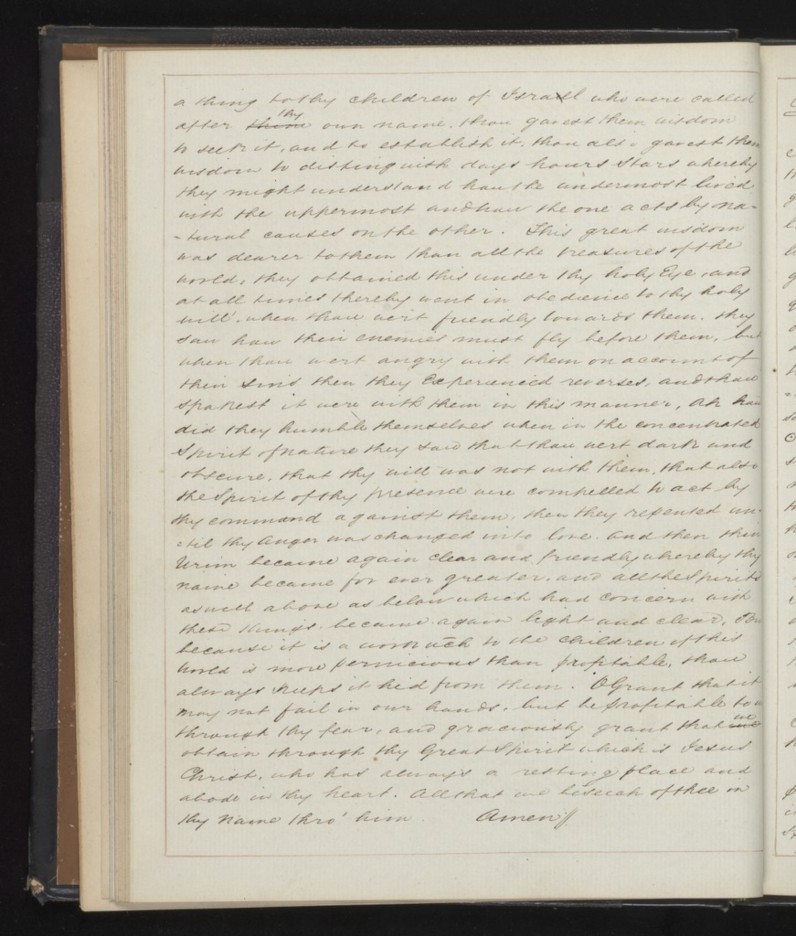 a thing to thy children of Israel who were called
after thy own name. thou gavest them wisdom
to seek it, and to establish it, thou also gavest them
wisdom to distinguish days hours Stars whereby
they might understand how the undermost lived
with the uppermost and how the one acts by na-
-tural causes on the other. This great wisdom
was dearer to them than all the treasures of the
world, they obtained this under thy holy Eye, and
at all times thereby went in obedience to thy holy
will. when thou wert friendly towards them. they
saw how their enemies must fly before them, but
when thou wert angry with them on account of
their sins then they Experienced reverses, and thou
Spakest it were with them in this manner, Ah how
did they humble themselves when in the concentrated
Spirit of nature they saw that thou wert dark and
obscure, that thy will was not with them, that also
the Spirit of thy presence were compelled to act by
thy command against them, then they repented un-
-til thy Anger was changed into love. And then their
Urim became again clear and friendly whereby thy
name became for ever greater, and all the Spirits
as well above as below which had concern with
these things. became again light and clear, But
because it is a work which to the children of this
world is more pernicious than profitable, thou
always keeps it hid from them. O Grant that it
may not fail in our hands. but be profitable to us
through thy fear, and graciously grant that we
obtain through thy Great Spirit which is Jesus
Christ. who has always a resting place and
abode in thy heart. All that we beseech of thee in
thy name thro' him. Amen